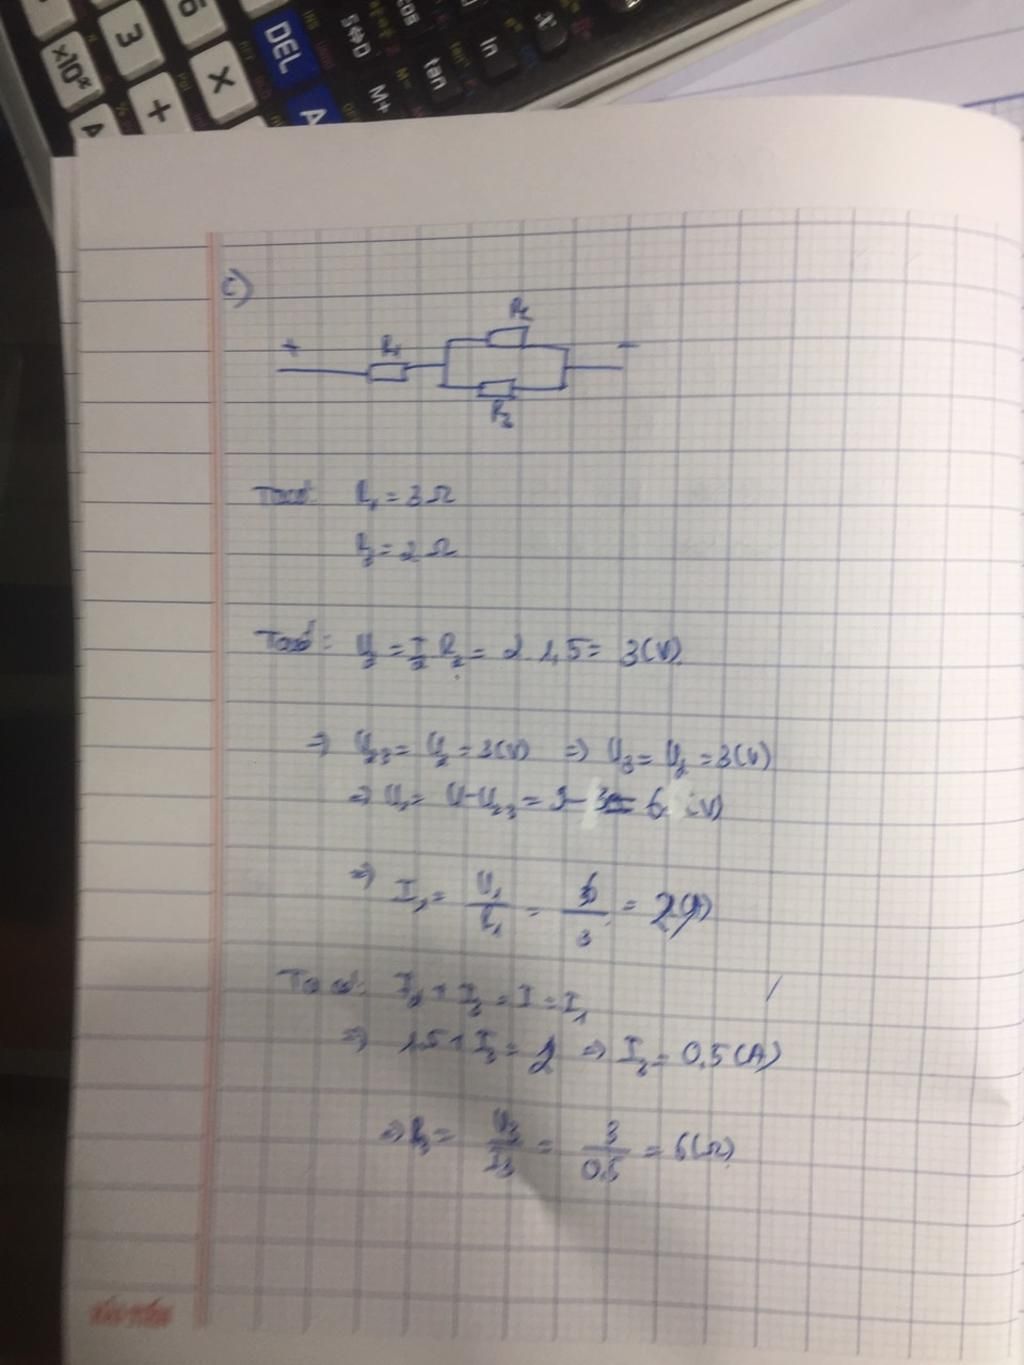 3
DEL
S⇔D
cos
tan
ln
x
×10ˣ
+
×
M+
A
c)
+
R₁
R₂
−
R₃
Ta có: R₁ = 3Ω
R₂ = 2Ω
Ta có: U₂ = I₂ R₂ = 2.1,5 = 3(V).
⇒ U₂₃ = U₂ = 3(V) ⇒ U₃ = U₂ = 3(V)
⇒ U₁ = U-U₂₃ = 9-3 = 6(V)
⇒ I₁ = U₁/R₁ = 6/3 = 2(A)
Ta có: I₂ + I₃ = I = I₁
⇒ 1,5 + I₃ = 2 ⇒ I₃ = 0,5(A)
⇒ R₃ = U₃/I₃ = 3/0,5 = 6(Ω)